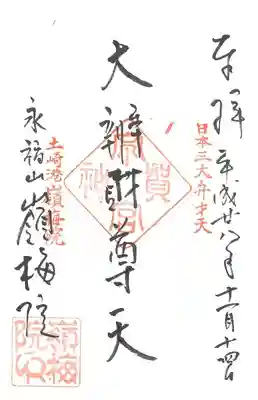 奉拝 平成廿八年十一月十四日
日本三大弁才天
大辨財尊天
土崎港嶺梅院
永福山嶺梅院
嶺梅院印